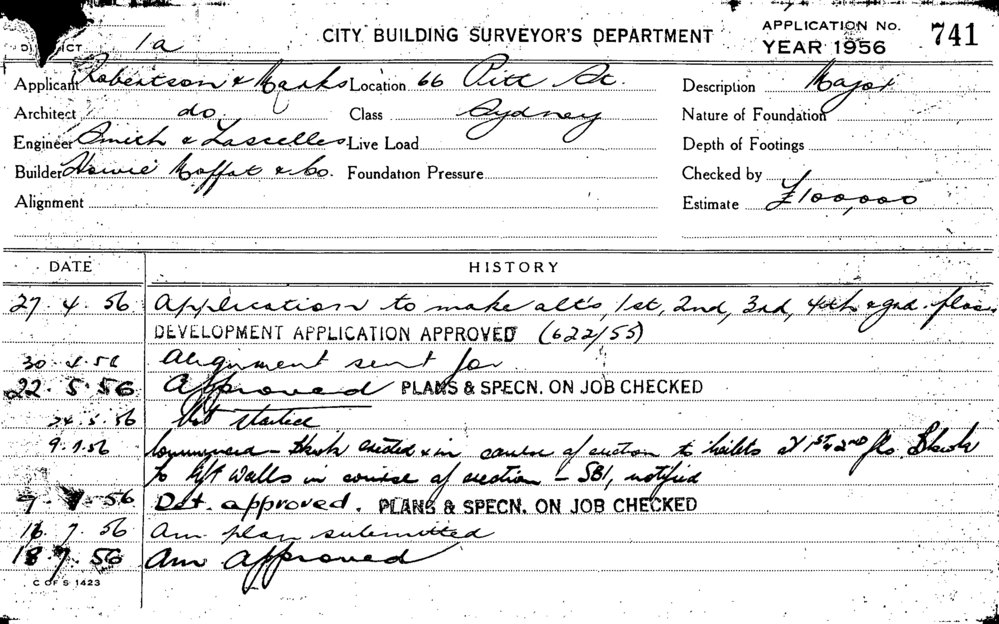 DISTRICT 1a CITY BUILDING SURVEYOR'S DEPARTMENT APPLICATION No. 741
YEAR 1956
Applicant Robertson & Marks Location 66 Pitt St. Description Major
Architect do Class Sydney Nature of Foundation
Engineer Smith & Lascelles Live Load Depth of Footings
Builder Howie Moffat & Co. Foundation Pressure Checked by
Alignment Estimate £100,000
DATE HISTORY
27.4.56 Application to make alts, 1st, 2nd, 3rd, 4th & gnd. floors
DEVELOPMENT APPLICATION APPROVED (622/55)
30.4.56 Alignment sent for
22.5.56 Approved PLANS & SPECN. ON JOB CHECKED
24.5.56 Not started
9.7.56 Commenced - erected & in course of erection to toilets at 1st & 2nd fls.
to lift walls in course of erection - SBI, notified
56 Det. approved. PLANS & SPECN. ON JOB CHECKED
16.7.56 Am plan submitted
18.7.56 Am Approved
C OF S 1423